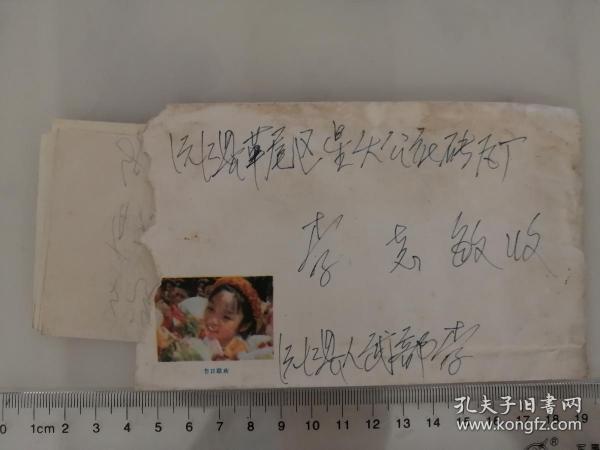 沅江县草尾区星火公社砖瓦厂
李志敏收
节日联欢
沅江县人武部李
0 1cm 2 3 4 5 6 7 8 9 10 11 12 13 14 15 16 17 18 19
孔夫子旧书网
www.kongfz.com